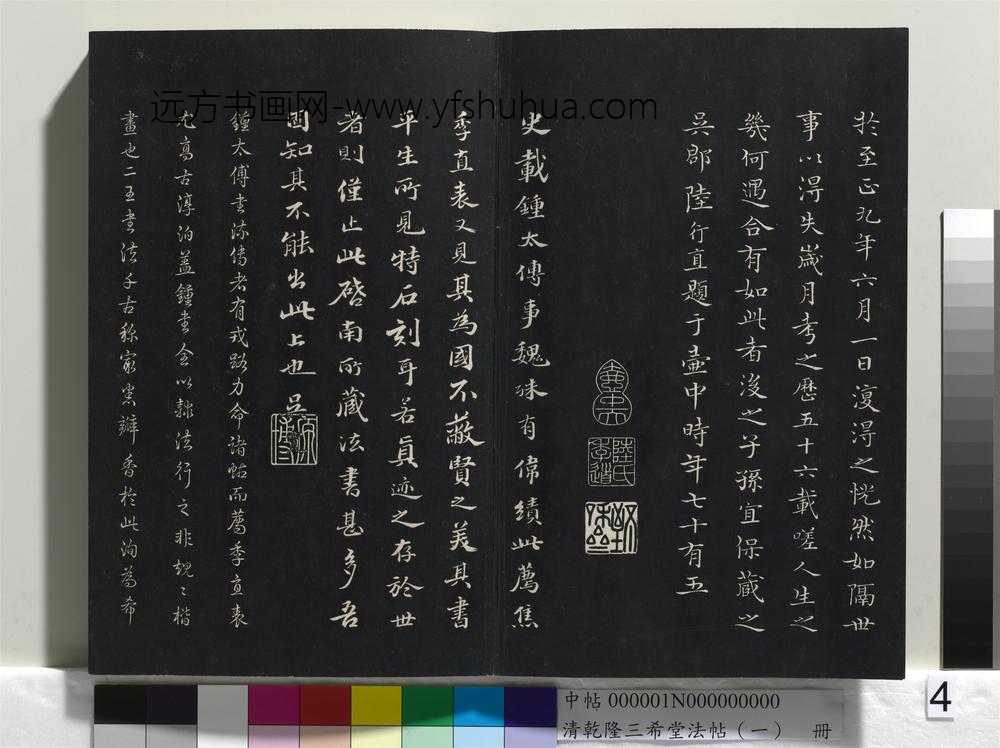 於至正九年六月一日復得之恍然如隔世
事以得失歲月考之歷五十六載嗟人生之
幾何遇合有如此者後之子孫宜保藏之
吳郡陸行直題于壺中時年七十有五
陸氏
史載鍾太傅事魏殊有偉績此薦焦
季直表又見其為國不蔽賢之美具書
平生所見特石刻耳若真迹之存於世
者則僅止此啓南所藏法書甚多吾
固知其不能出此上也吳
鍾太傅書流傳者有戎路力命諸帖而薦季直表
尤高古淳泊蓋鍾書全以隸法行之非規〻楷
畫也二王書法千古称家崇瓣香於此洵為希
远方书画网-www.yfshuhua.com
中帖 000001N000000000
清乾隆三希堂法帖（一） 冊
4